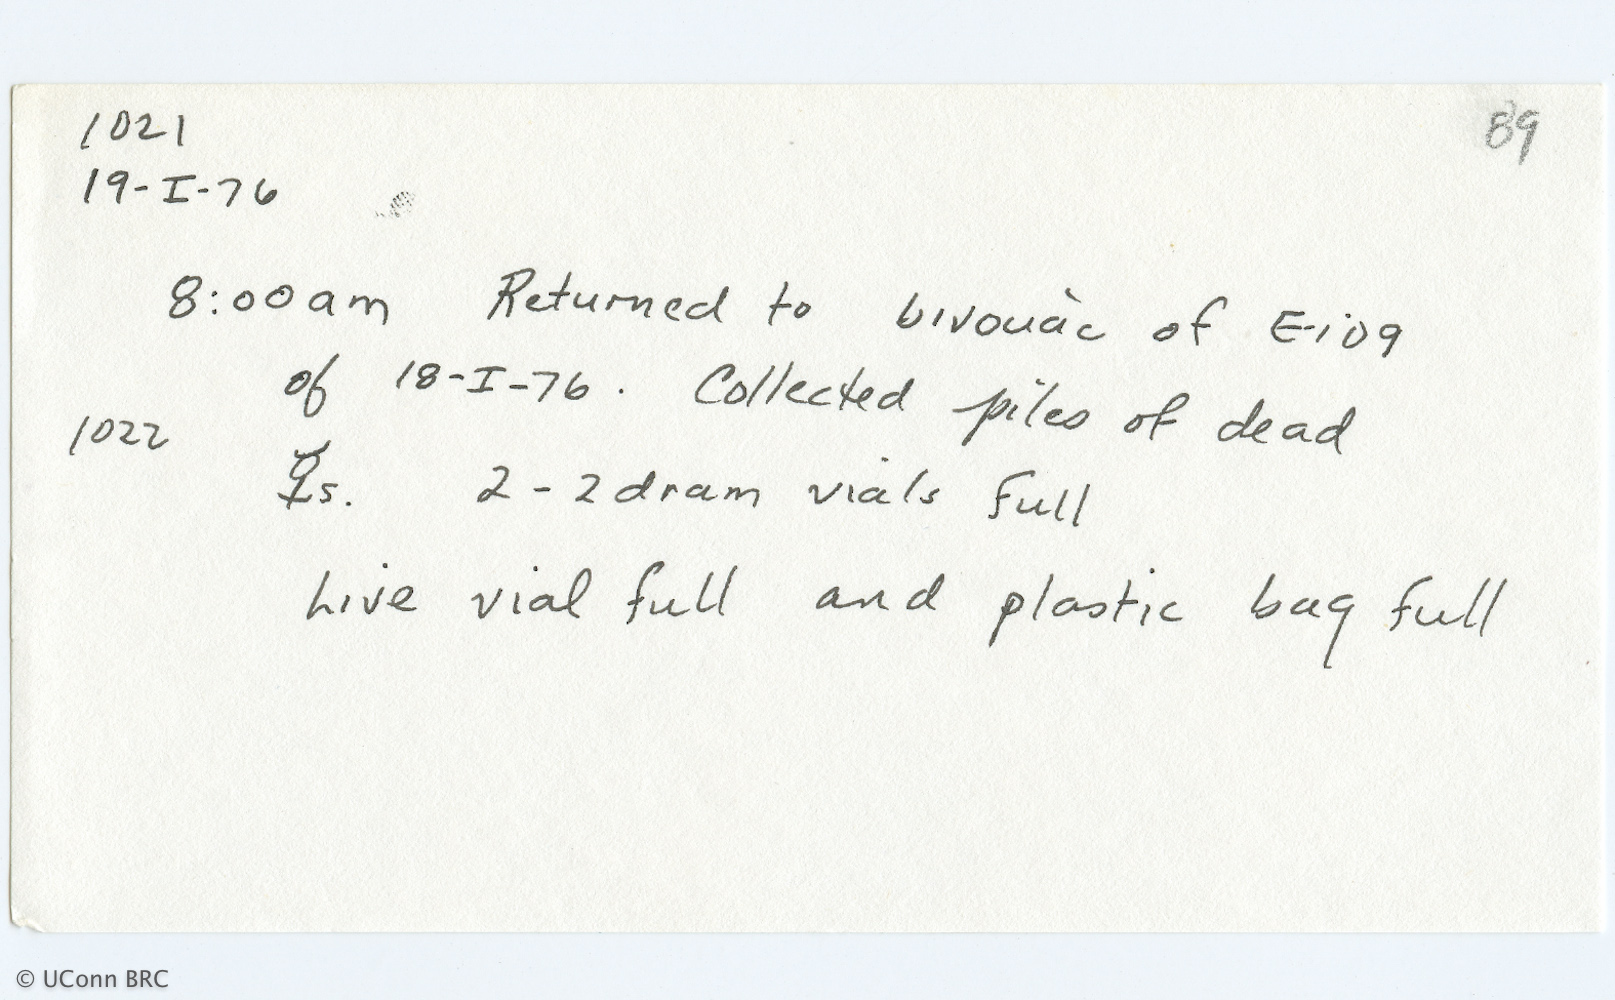 1021
89
19-I-76
8:00am Returned to bivouac of E-109
of 18-I-76. Collected piles of dead
1022
☿s. 2-2dram vials full
Live vial full and plastic bag full
© UConn BRC